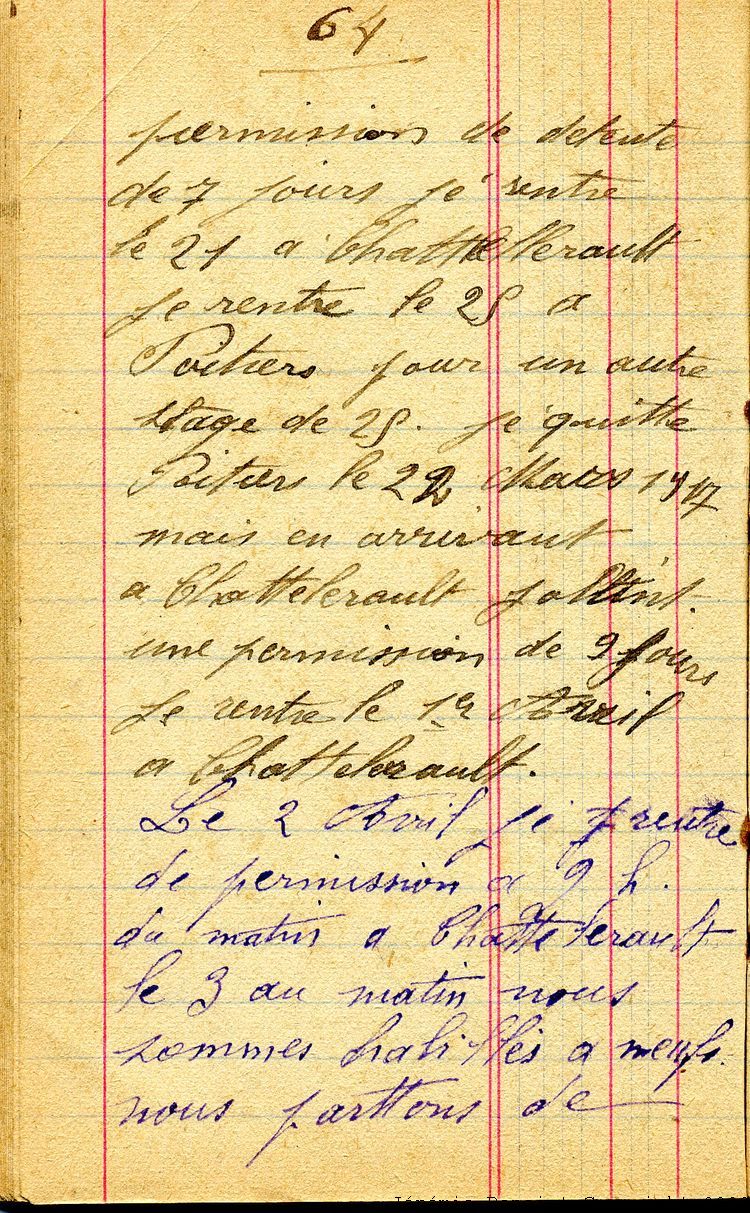 64
permission de detente
de 7 jours je rentre
le 21 a Chattellerault
je rentre le 25 a
Poitiers pour un autre
stage de 25. je quitte
Poitiers le 22 Mars 1917
mais en arrivant
a Chattelerault
une permission de 9 jours
je rentre le 1er Avril
a Chattelerault.
Le 2 Avril je rentre
de permission a 9 h.
du matin a Chattelerault
le 3 au matin nous
sommes habillés a neufs.
nous parttons de